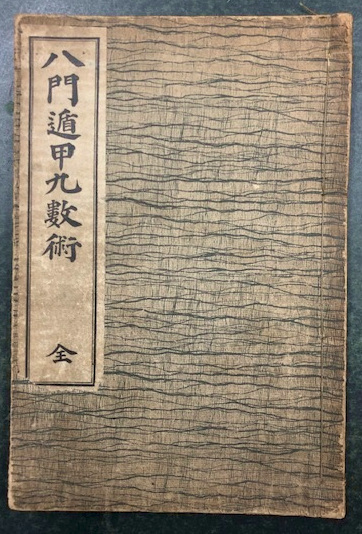 八門遁甲九數術
全